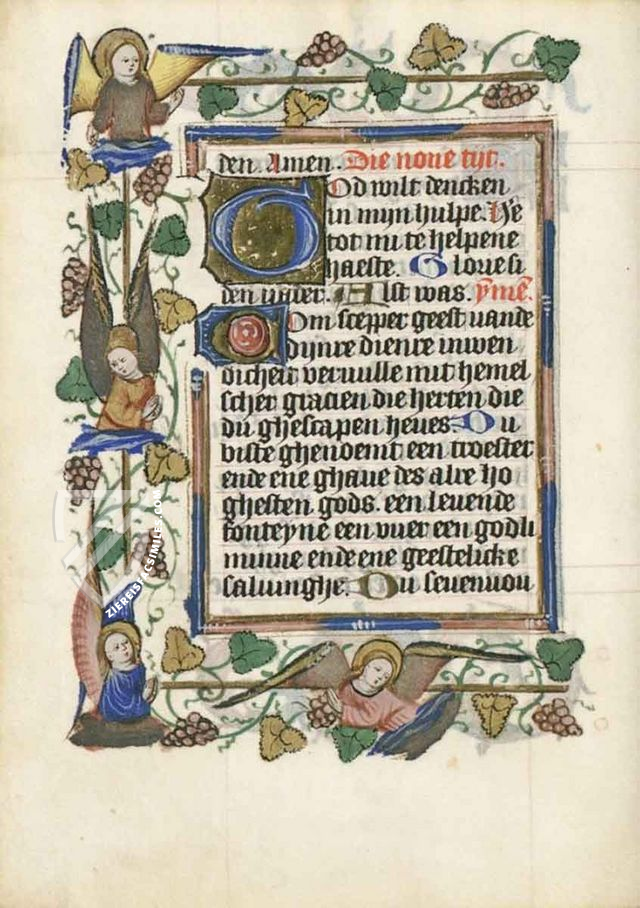 den. Amen. Die none tijt.
God wilt dencken
in mijn hulpe. He
tot mi te helpene
haeste. Glorie si
den vader. Alst was. ymne.
Com scepper geest vande
dynre dienre inwen
dicheit vervulle mit hemel
scher gracien die herten die
du ghescapen heves. Du
biste ghenoemt een troester
ende ene ghave des alre ho
ghesten gods. een levende
fonteyne een vuer een godli
minne ende ene geestelicke
salvinghe. Du sevenvou
ZIEREIS FACSIMILES.COM